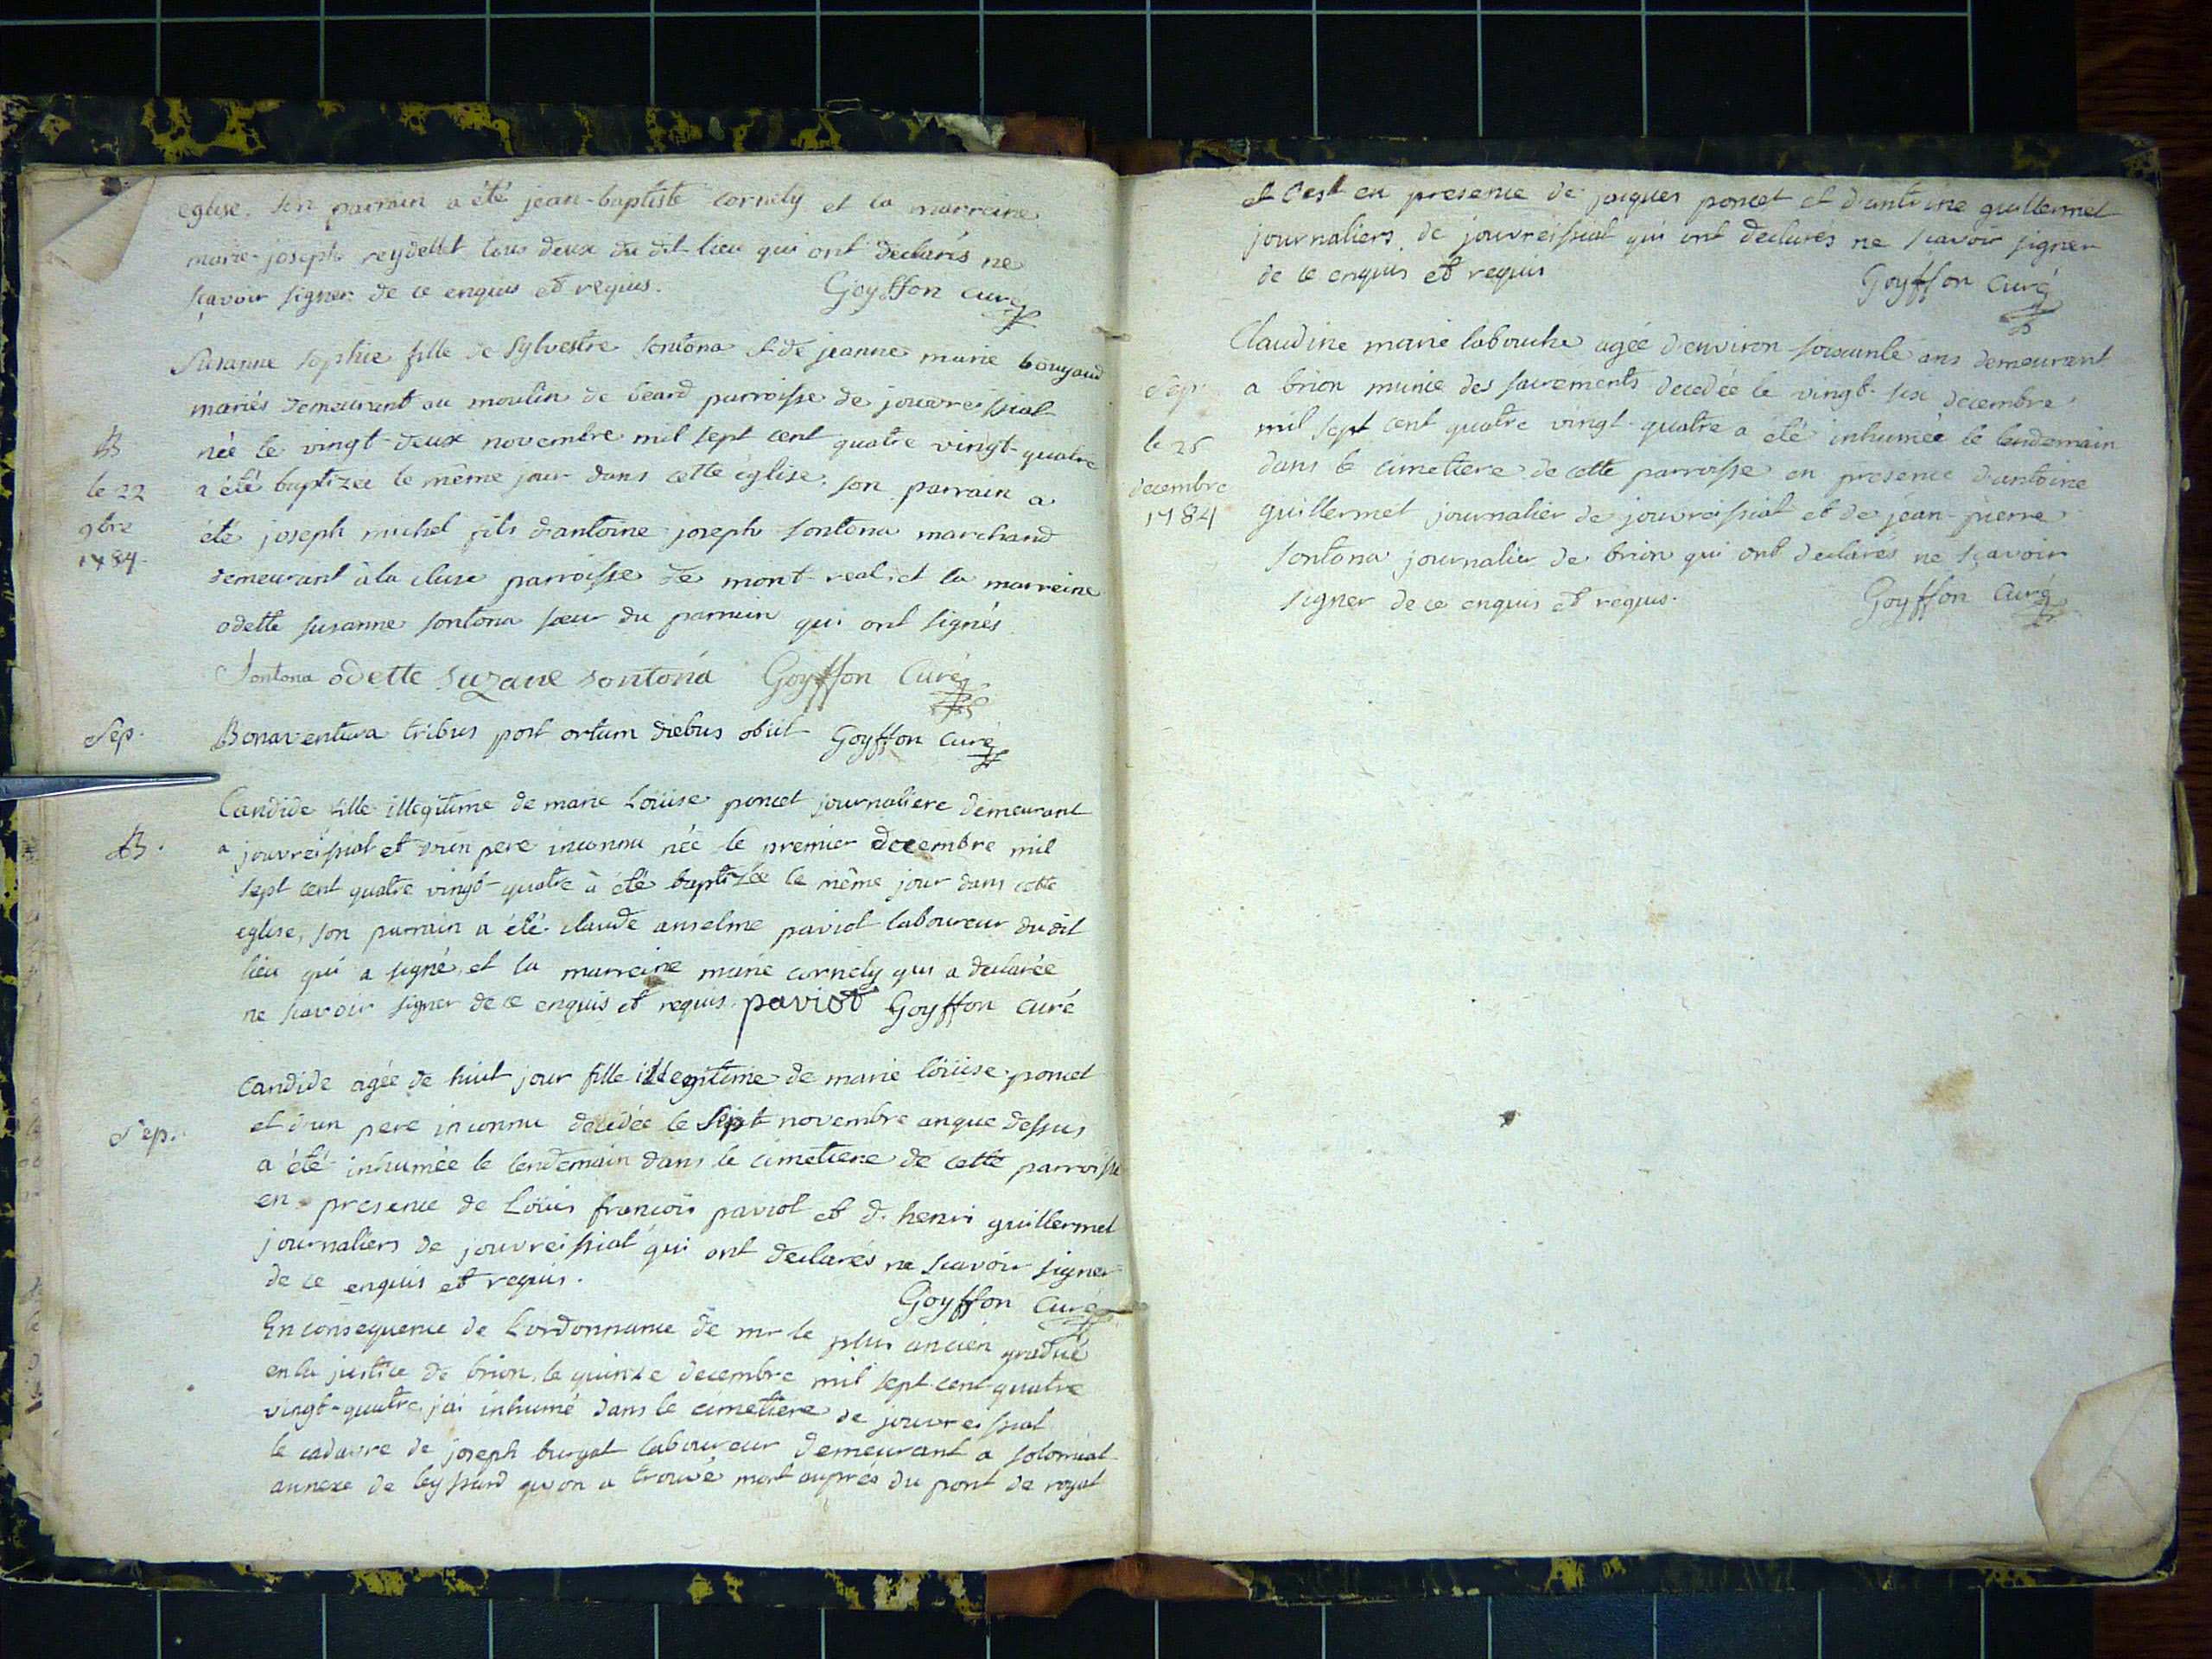 eglise. son parrain a été jean-baptiste cornely et la marreine
marie-joseph reydellet tous deux du dit-lieu qui ont declarés ne
sçavoir signer de ce enquis et requis. Goyffon curé
Susanne sophie fille de Sylvestre sontona et de jeanne marie bouyaud
mariés demeurant au moulin de béard parroisse de jouvreissiat
B
le 22
9bre
1784.
née le vingt-deux novembre mil sept cent quatre vingt-quatre
a été baptizée le même jour dans cette église. son parrain a
été joseph michel fils d'antoine joseph sontona marchand
demeurant à la cluse parroisse de mont-real, et la marreine
odette susanne sontona sœur du parrain qui ont signés
Sontona odette suzane sontona Goyffon Curé
Sep. Bonaventura tribus post ortum diebus obiit Goyffon curé
Candide fille illegitime de marie Loüise poncet journaliere demeurant
B. a jouvreissiat et d'un pere inconnu née le premier decembre mil
sept cent quatre vingt-quatre à été baptizée le même jour dans cette
eglise, son parrain a été claude anselme paviot laboureur du dit
lieu qui a signé, et la marreine marie cornely qui a declarée
ne scavoir signer de ce enquis et requis. paviot Goyffon curé
Candide agée de huit jour fille illegitime de marie loüise poncet
Sep. et d'un pere inconnu decedée le sept novembre an que dessus
a été inhumée le lendemain dans le cimetiere de cette parroisse
en presence de Loüis françois paviot et d. henri guillermet
journaliers de jouvreissiat qui ont declarés ne scavoir signer
de ce enquis et requis.
Goyffon Curé
En consequence de L'ordonnance de mr le plus ancien gradué
en la justice de brion, le quinze decembre mil sept-cent-quatre
vingt-quatre j'ai inhumé dans le cimetiere de jouvreissiat
le cadavre de joseph burgat laboureur demeurant a solomiat
annexe de leyssard qu'on a trouvé mort auprés du pont de royat
et c'est en presence de jaques poncet et d'antoine guillermet
journaliers de jouvreissiat qui ont declarés ne scavoir signer
de ce enquis et requis Goyffon Curé
Claudine marie labouche agée d'environ soixante ans demeurant
Sep.
le 26
decembre
1784
a brion munie des sacrements decedée le vingt-six decembre
mil sept cent quatre vingt-quatre a été inhumée le lendemain
dans le cimetiere de cette parroisse en presence d'antoine
guillermet journalier de jouvreissiat et de jean-pierre
sontona journalier de brion qui ont declarés ne sçavoir
signer de ce enquis et requis. Goyffon Curé